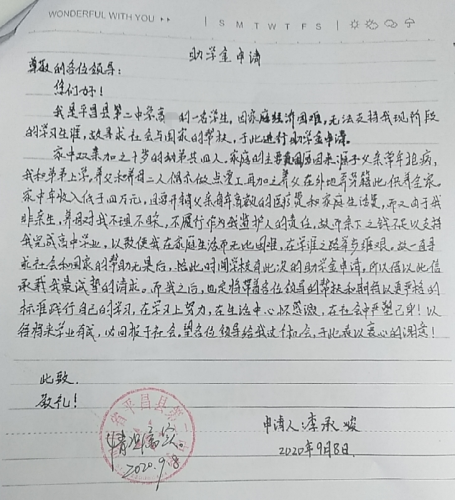 WONDERFUL WITH YOU
S M T W T F S
助学金申请
尊敬的各位领导:
您们好!
我是平昌县第二中学高 的一名学生,因家庭经济困难,无法支持我现阶段
的学习生涯,故寻求社会与国家的帮扶,于此进行助学金申请。
家中双亲加之十岁的幼弟共四人,家庭的主要 因来源于父亲常年抱病,
我和弟弟上学,养父和养母二人偶尔做点零工再加之养父在外地 ,供养全家。
家中年收入低于四万元,且每月得父亲身有高额的医疗费和家庭生活费,而又由于我
非亲生,养母对我不理不睬,不履行作为我监护人的责任,故所余下之钱不足以支持
我完成高中学业,以致使我在家庭生活中无比困难,在学涯之路举步维艰,故一直寻
求社会和国家的帮助无果后,恰此时间学校有此次的助学金申请,所以借以此信
承载我最诚挚的请求。而我之后,也定将带着各位领导的帮扶和期待以更严格的
标准践行自己的学习,在学习上努力,在生活中心怀感激,在社会中严塑己身!以
待将来学业有成,必回报于社会。望各位领导给我这份机会,于此致以衷心的谢意!
此致
敬礼!
省平昌县第二
情况属实。
2020.9.8
申请人:李承峻
2020年9月8日